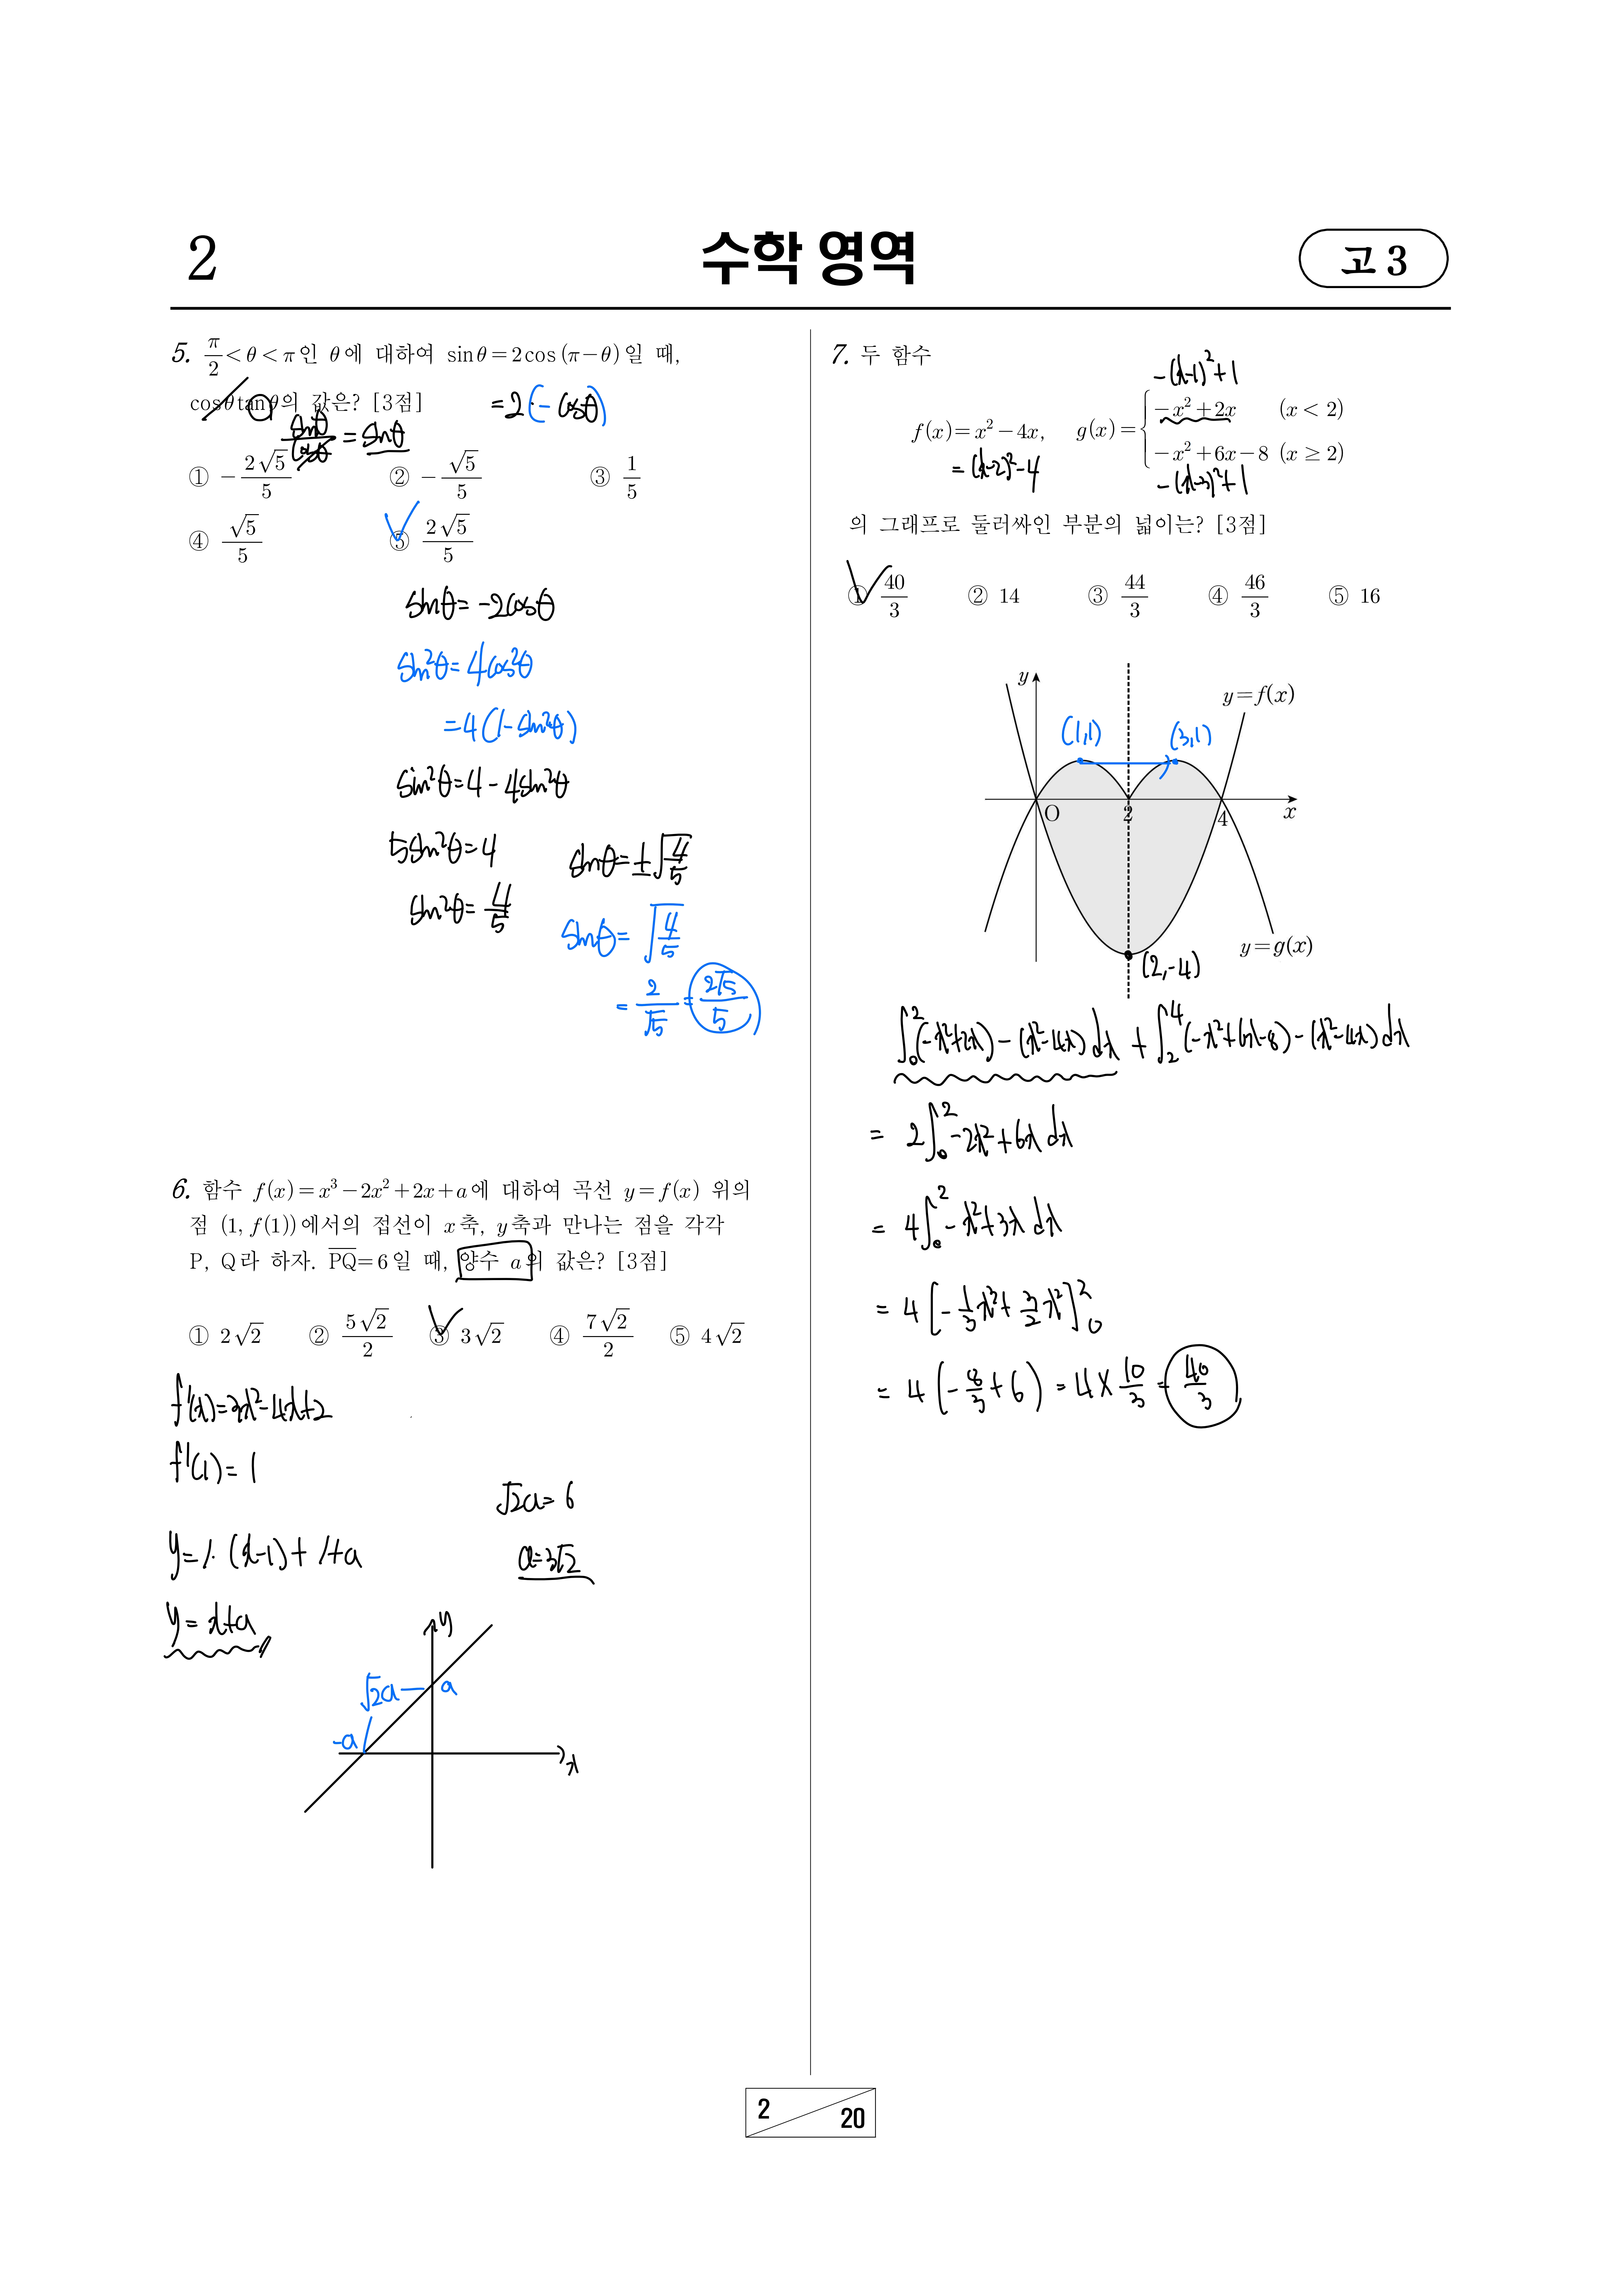 2
수학 영역
고 3
5. π/2 < θ < π인 θ에 대하여 sinθ = 2cos(π−θ)일 때,
cosθtanθ의 값은? [3점]
= 2(−cosθ)
sinθ/cosθ = sinθ
① −2√5/5 ② −√5/5 ③ 1/5
④ √5/5 ⑤ 2√5/5
sinθ = −2cosθ
sin²θ = 4cos²θ
= 4(1−sin²θ)
sin²θ = 4 − 4sin²θ
5sin²θ = 4
sin²θ = 4/5
sinθ = ±√(4/5)
sinθ = √(4/5)
= 2/√5 = 2√5/5
6. 함수 f(x) = x³ − 2x² + 2x + a에 대하여 곡선 y = f(x) 위의
점 (1, f(1))에서의 접선이 x축, y축과 만나는 점을 각각
P, Q라 하자. PQ = 6일 때, 양수 a의 값은? [3점]
① 2√2 ② 5√2/2 ③ 3√2 ④ 7√2/2 ⑤ 4√2
f'(x) = 3x² − 4x + 2
f'(1) = 1
y = 1·(x−1) + 1 + a
y = x + a
√2a = 6
a = 3√2
y
√2a
a
−a
x
7. 두 함수
−(x−1)² + 1
f(x) = x² − 4x, g(x) = { −x² + 2x (x < 2)
−x² + 6x − 8 (x ≥ 2)
= (x−2)² − 4
−(x−3)² + 1
의 그래프로 둘러싸인 부분의 넓이는? [3점]
① 40/3 ② 14 ③ 44/3 ④ 46/3 ⑤ 16
y
y = f(x)
(1,1)
(3,1)
O
2
4
x
y = g(x)
(2,−4)
∫₀² (−x²+2x) − (x²−4x) dx + ∫₂⁴ (−x²+6x−8) − (x²−4x) dx
= 2∫₀² −2x² + 6x dx
= 4∫₀² −x² + 3x dx
= 4[−1/3x³ + 3/2x²]₀²
= 4(−8/3 + 6) = 4 × 10/3 = 40/3
2
20